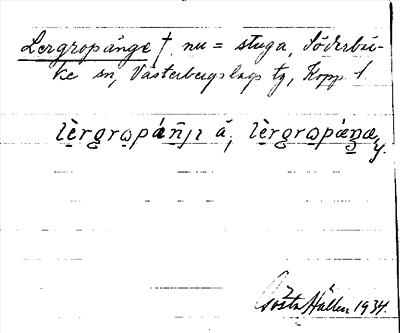 Lergropänge †, nu = stuga, Söderbär-
ke sn, Västerbergslags tg, Kopp. l.
lèrgrωpáŋ̄ȷı å, lèrgrωpáŋæ
Gösta Hallen 1934.